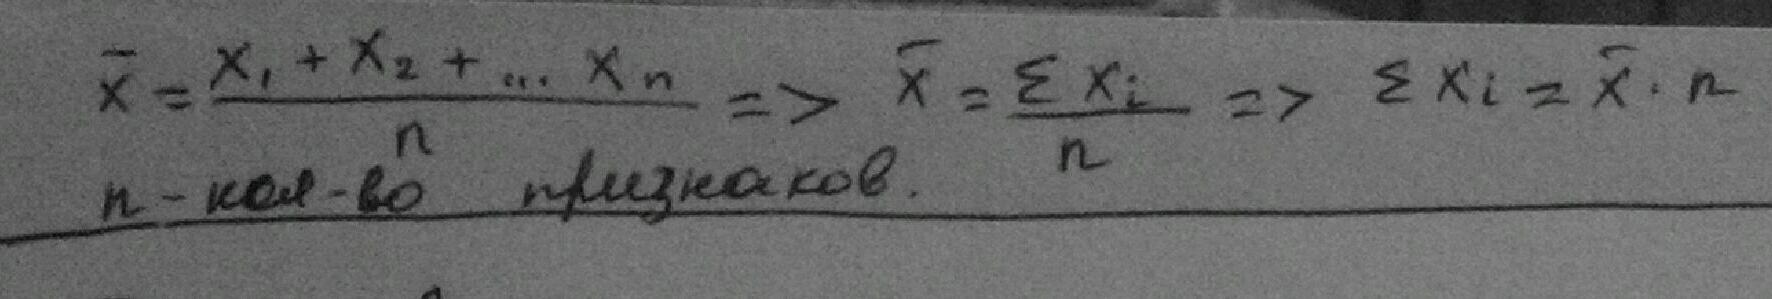 x̄ = (x₁ + x₂ + ... xₙ) / n => x̄ = Σxᵢ / n => Σxᵢ = x̄ · n
n - кол-во признаков.